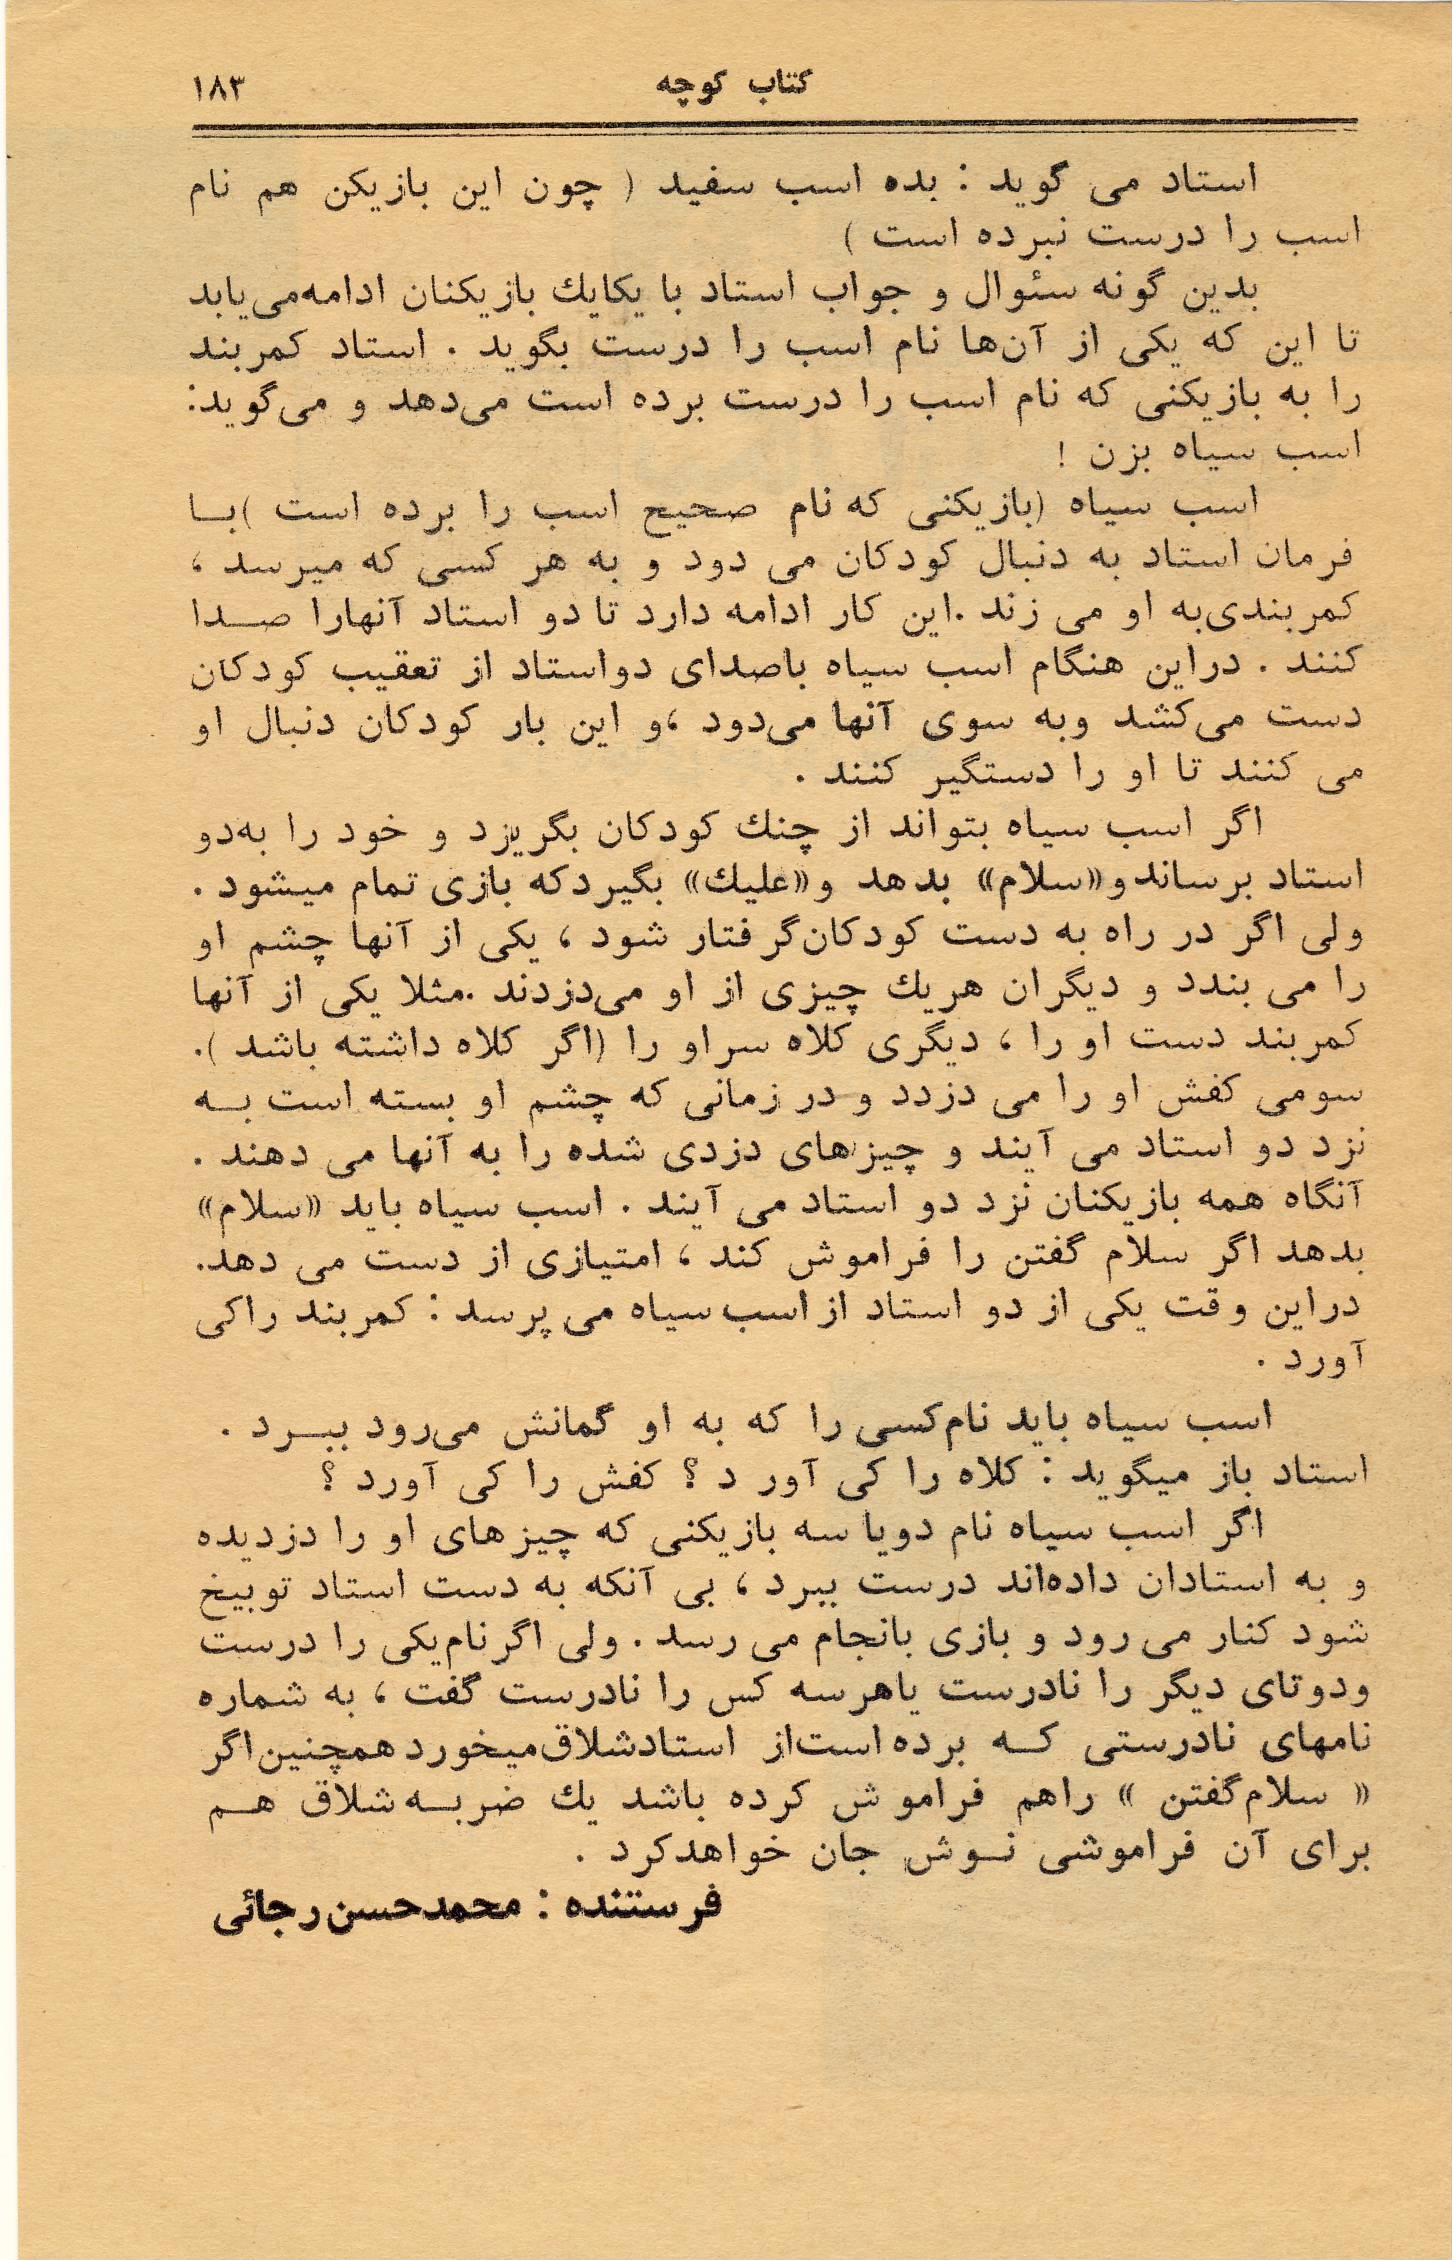 کتاب کوچه ۱۸۳
استاد می گوید : بده اسب سفید ( چون این بازیکن هم نام
اسب را درست نبرده است )
بدین گونه سئوال و جواب استاد با یکایك بازیکنان ادامه‌می‌یابد
تا این که یکی از آن‌ها نام اسب را درست بگوید . استاد کمربند
را به بازیکنی که نام اسب را درست برده است می‌دهد و می‌گوید:
اسب سیاه بزن !
اسب سیاه (بازیکنی که نام صحیح اسب را برده است )بـا
فرمان استاد به دنبال کودکان می دود و به هر کسی که میرسد ،
کمربندی‌به او می زند .این کار ادامه دارد تا دو استاد آنهارا صـدا
کنند . دراین هنگام اسب سیاه باصدای دواستاد از تعقیب کودکان
دست می‌کشد وبه سوی آنها می‌دود ،و این بار کودکان دنبال او
می کنند تا او را دستگیر کنند .
اگر اسب سیاه بتواند از چنك کودکان بگریزد و خود را به‌دو
استاد برساندو«سلام» بدهد و«علیك» بگیردکه بازی تمام میشود .
ولی اگر در راه به دست کودکان‌گرفتار شود ، یکی از آنها چشم او
را می بندد و دیگران هریك چیزی از او می‌دزدند .مثلا یکی از آنها
کمربند دست او را ، دیگری کلاه سراو را (اگر کلاه داشته باشد ).
سومی کفش او را می دزدد و در زمانی که چشم او بسته است بـه
نزد دو استاد می آیند و چیزهای دزدی شده را به آنها می دهند .
آنگاه همه بازیکنان نزد دو استاد می آیند . اسب سیاه باید «سلام»
بدهد اگر سلام گفتن را فراموش کند ، امتیازی از دست می دهد.
دراین وقت یکی از دو استاد ازاسب سیاه می پرسد : کمربند راکی
آورد .
اسب سیاه باید نام‌کسی را که به او گمانش می‌رود ببـرد .
استاد باز میگوید : کلاه را کی آور د ؟ کفش را کی آورد ؟
اگر اسب سیاه نام دویا سه بازیکنی که چیزهای او را دزدیده
و به استادان داده‌اند درست ببرد ، بی آنکه به دست استاد توبیخ
شود کنار می رود و بازی بانجام می رسد . ولی اگرنام‌یکی را درست
ودوتای دیگر را نادرست یاهرسه کس را نادرست گفت ، به شماره
نامهای نادرستی کـه برده‌است‌از استادشلاق‌میخوردهمچنین‌اگر
« سلام‌گفتن » راهم فراموش کرده باشد یك ضربـه شلاق هـم
برای آن فراموشی نـوش جان خواهدکرد .
فرستنده : محمدحسن رجائی